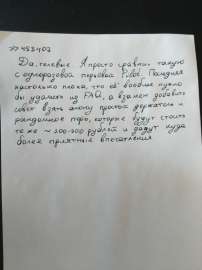 >>453403
Да, гелевые. Я просто сравнил такую
с одноразовой перьевой Pilot. Последняя
настолько плоха, что её вообще нужно
бы удалить из FAQ, а взамен добавить
совет взять анону простой держатель и
рандомное перо, которые будут стоить
те же ~200-300 рублей и дадут куда
более приятные впечатления